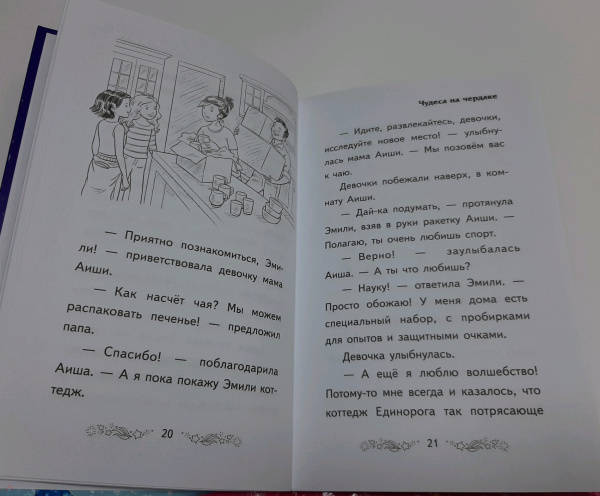 — Приятно познакомиться, Эми-
ли! — приветствовала девочку мама
Аиши.
— Как насчёт чая? Мы можем
распаковать печенье! — предложил
папа.
— Спасибо! — поблагодарила
Аиша. — А я пока покажу Эмили кот-
тедж.
20
Чудеса на чердаке
— Идите, развлекайтесь, девочки,
исследуйте новое место! — улыбну-
лась мама Аиши. — Мы позовём вас
к чаю.
Девочки побежали наверх, в ком-
нату Аиши.
— Дай-ка подумать, — протянула
Эмили, взяв в руки ракетку Аиши. —
Полагаю, ты очень любишь спорт.
— Верно! — заулыбалась
Аиша. — А ты что любишь?
— Науку! — ответила Эмили. —
Просто обожаю! У меня дома есть
специальный набор, с пробирками
для опытов и защитными очками.
Девочка улыбнулась.
— А ещё я люблю волшебство!
Потому-то мне всегда и казалось, что
коттедж Единорога так потрясающе
21